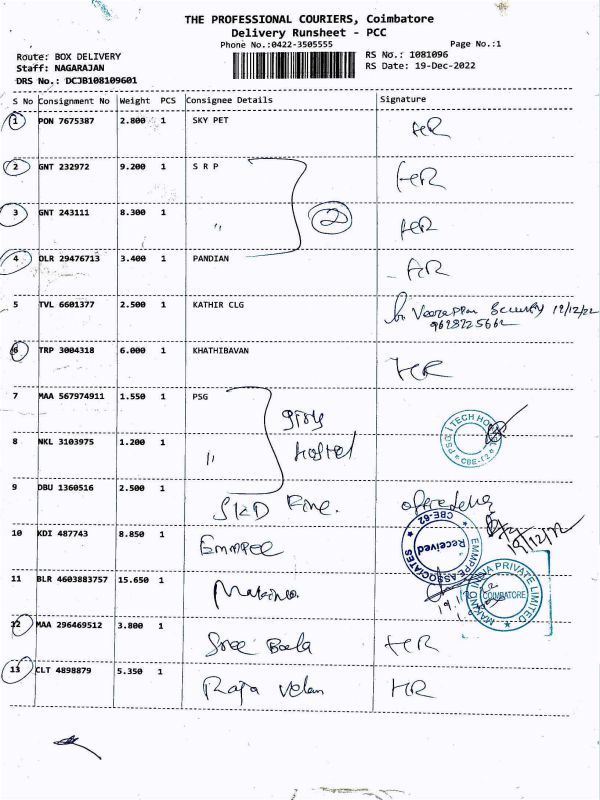 THE PROFESSIONAL COURIERS, Coimbatore
Delivery Runsheet - PCC
Phone No.:0422-3505555
Page No.:1
Route: BOX DELIVERY
RS No.: 1081096
Staff: NAGARAJAN
RS Date: 19-Dec-2022
DRS No.: DCJB108109601
S No Consignment No Weight PCS Consignee Details Signature
1 PON 7675387 2.800 1 SKY PET
2 GNT 232972 9.200 1 S R P
3 GNT 243111 8.300 1 "
2
4 DLR 29476713 3.400 1 PANDIAN
5 TVL 6601377 2.500 1 KATHIR CLG
Security 19/12/22
6 TRP 3004318 6.000 1 KHATHIBAVAN
7 MAA 567974911 1.550 1 PSG
girls
Hostel
8 NKL 3103975 1.200 1 "
PSG I TECH HOSTEL
* CBE-12 *
9 DBU 1360516 2.500 1
10 KDI 487743 8.850 1 Emmpee
EMMPEE ASSOCIATES
CBE-62
Received
19/12/22
11 BLR 4603883757 15.650 1 Makino
MAKINO INDIA PRIVATE LIMITED
COIMBATORE
12 MAA 296469512 3.800 1 Sree Bala
13 CLT 4898879 5.350 1 Raja Velan